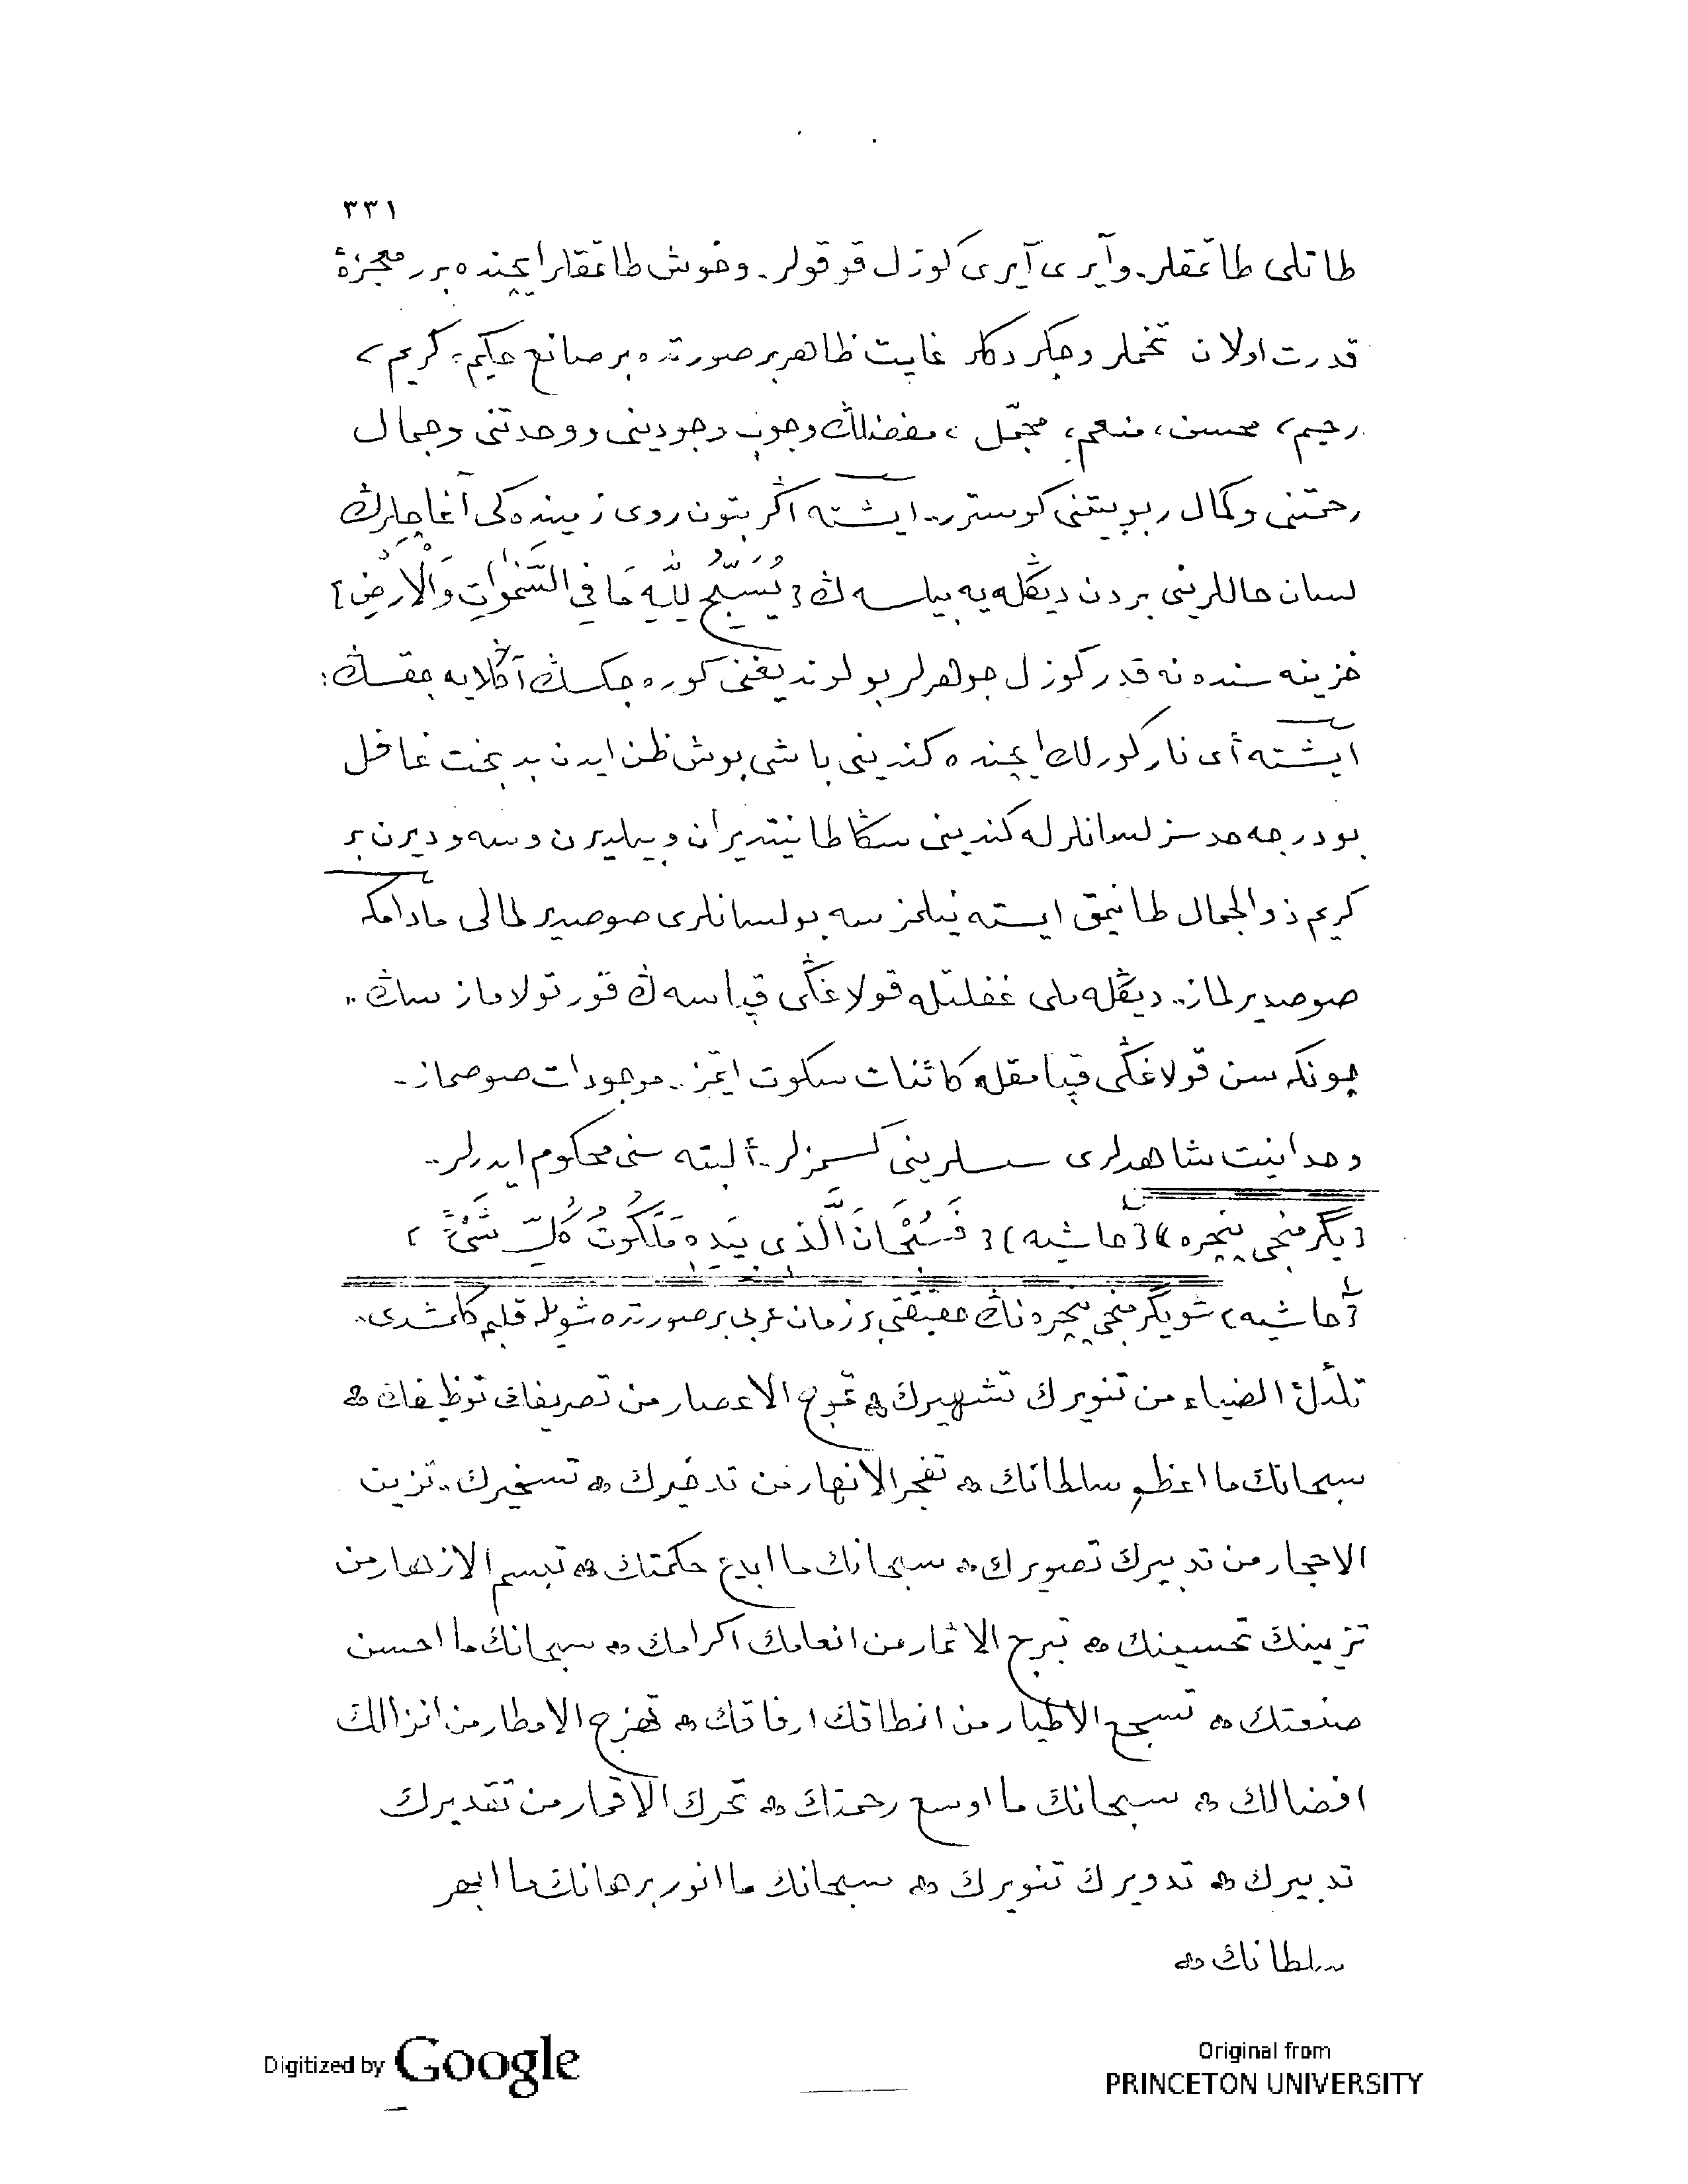 ٣٣١
طاتلى طاتمقلر.. وآيرى آيرى كوزل قوقولر.. وخوش طاتمقلر ايچنده برر معجزۀ
قدرت اولان تخملر وچكردكلر غايت ظاهر بر صورتده بر صانع حكيم، كريم،
رحيم، محسن، منعم، مجمّل، مفضلڭ وجوب وجودينى ووحدتنى وجمال
رحمتنى وكمال ربوبيتنى كوسترر.. ايشته اڭر بتون روى زمينده كى آغاجلرڭ
لسان حاللرينى بردن ديڭله يه بيلسه ڭ [ يُسَبِّحُ لِلّٰهِ مَا فِى السَّمٰوَاتِ وَالْاَرْضِ ]
خزينه سنده نه قدر كوزل جوهرلر بولونديغنى كوره جكسڭ آڭلايه جقسڭ:
ايشته أى نانكورلك ايچنده كندينى باشى بوش ظن ايدن بدبخت غافل
بو درجه حدسز لسانلرله كندينى سڭا طانيتديران وبيلديرن وسه وديرن بر
كريم ذوالجمال طانيمق ايسته نيلمزسه بو لسانلرى صوصديرملالى مادامكه
صوصديرلماز.. ديڭله ملى غفلتله قولاغڭى قپاسه ڭ قورتولامازسڭ..
چونكه سن قولاغڭى قپامقله كائنات سكوت ايتمز.. موجودات صوصماز..
وحدانيت شاهدلرى سسلرينى كسمزلر.. ألبته سنى محكوم ايدرلر..
[ يگرمنجى پنجره ] (حاشيه) [ فَسُبْحَانَ الَّذِى بِيَدِهِ مَلَكُوتُ كُلِّ شَىْءٍ ،
[ حاشيه ] شو يگرمنجى پنجره ناڭ حقيقتى بر زمان عربى بر صورتده شويله قلبم كلمشدى..
تلألؤ الضياء من تنويرك تشهيرك ۞ تموج الاعصار من تصريفك توظيفك ۞
سبحانك ما اعظم سلطانك ۞ تفجر الانهار من تدخيرك ۞ تسخيرك.. تزين
الاحجار من تدبيرك تصويرك ۞ سبحانك ما ابدع حكمتك ۞ تبسم الازهار من
تزيينك تحسينك ۞ تبرج الاثمار من انعامك اكرامك ۞ سبحانك ما احسن
صنعتك ۞ تسجع الاطيار من انطاقك ارفاقك ۞ تهزج الامطار من انزالك
افضالك ۞ سبحانك ما اوسع رحمتك ۞ تحرك الاقمار من تقديرك
تدبيرك ۞ تدويرك تنويرك ۞ سبحانك ما انور برهانك ما ابهر
سلطانك ۞
Digitized by Google
Original from
PRINCETON UNIVERSITY